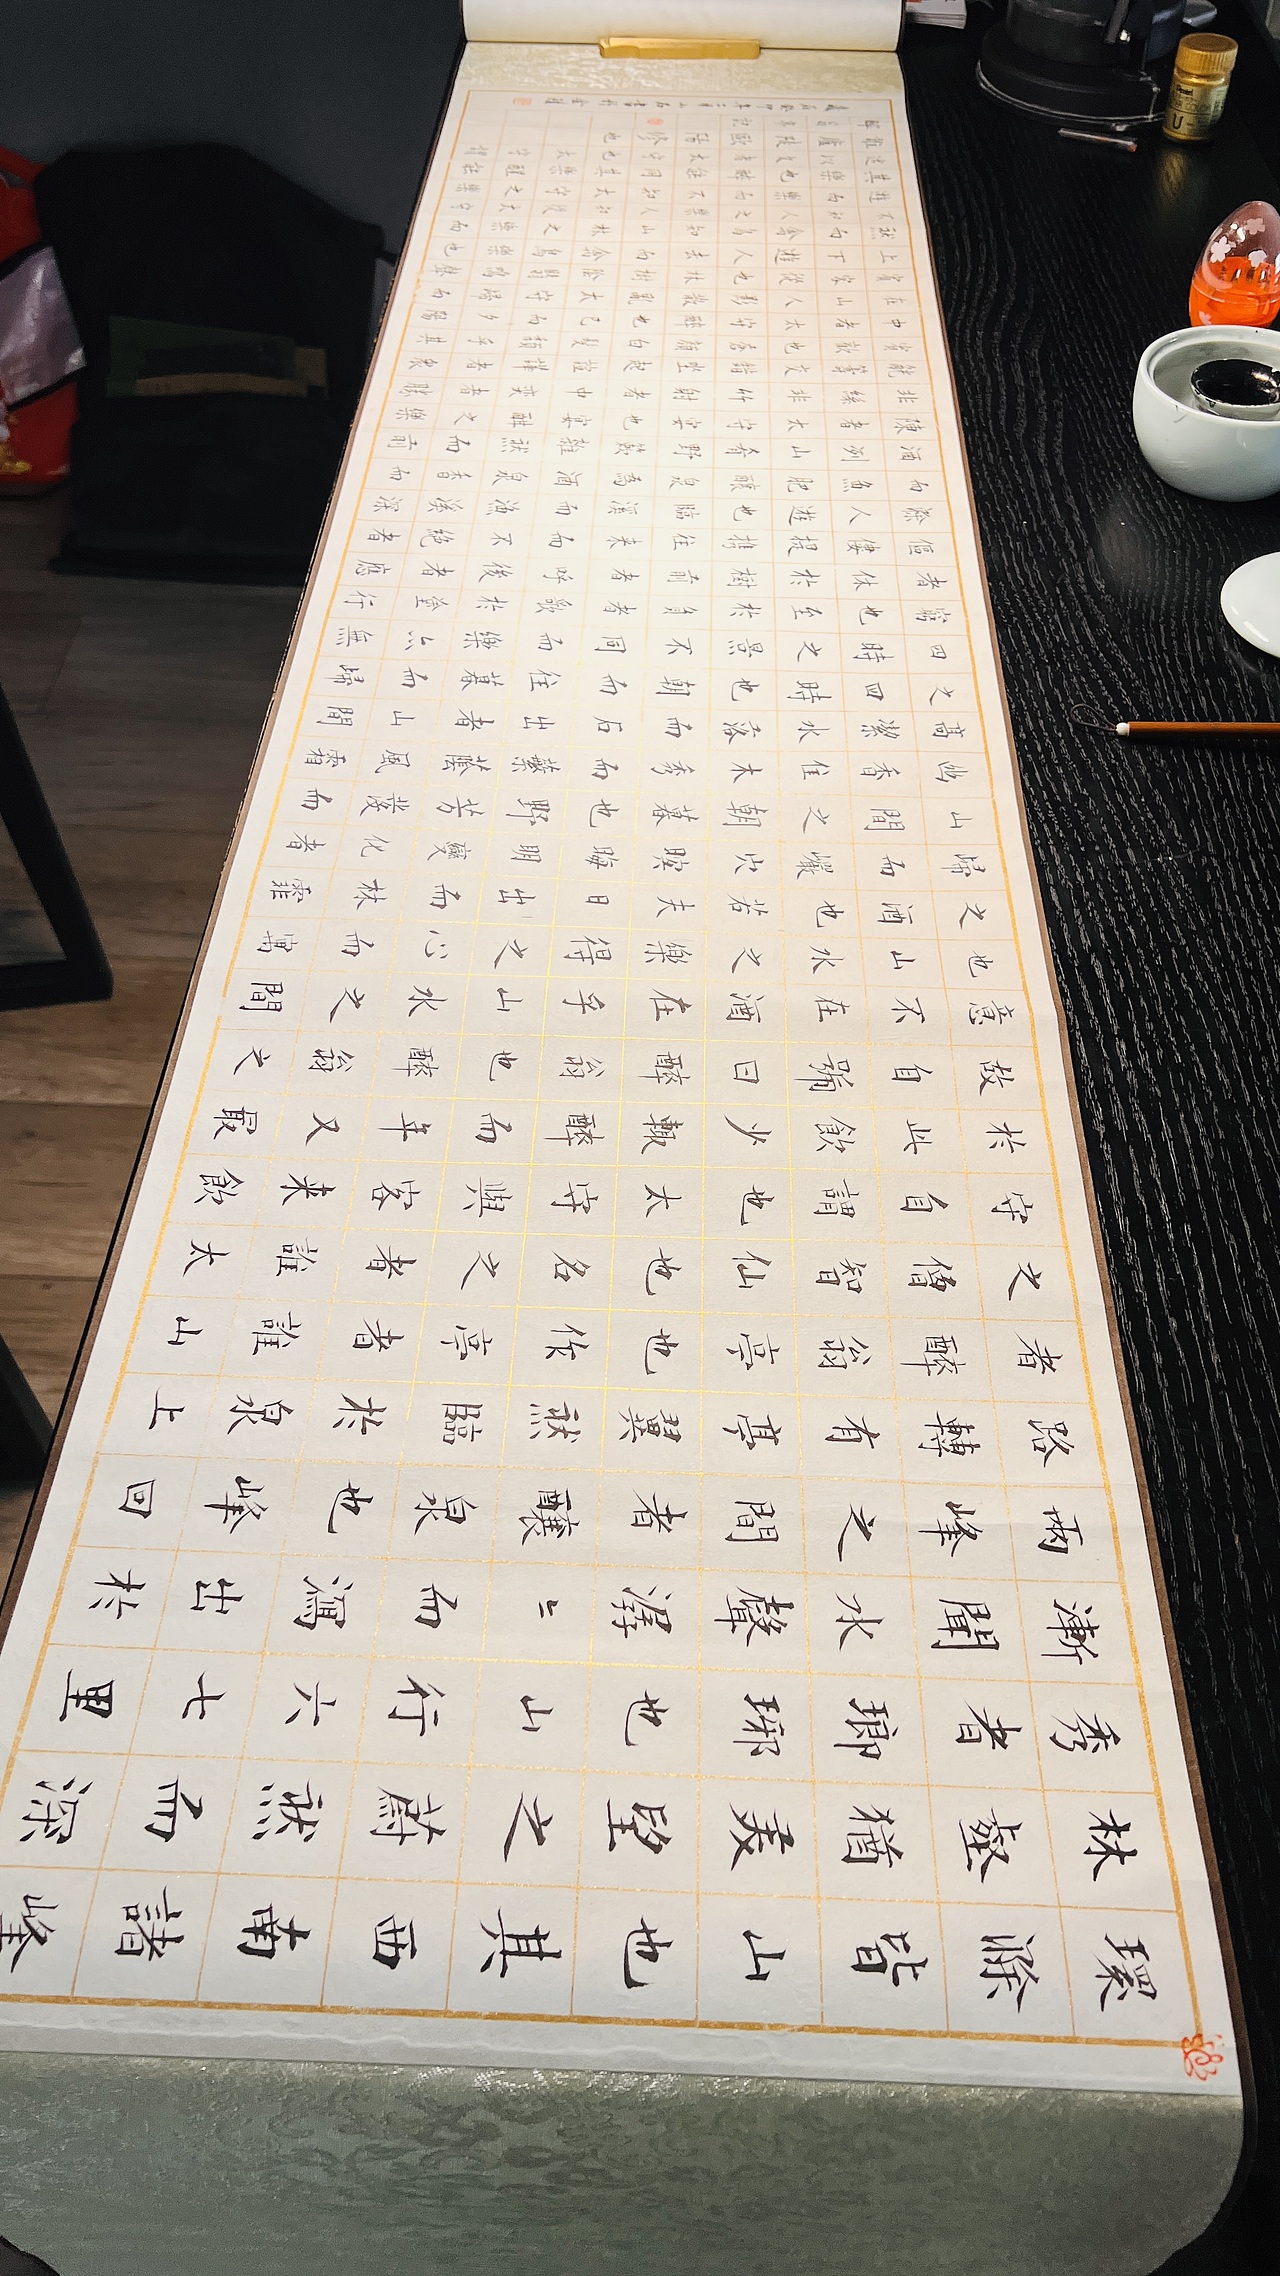 環滁皆山也其西南諸峰
林壑猶美望之蔚然而深
秀者瑯琊也山行六七里
漸聞水聲潺〻而瀉出於
兩峰之間者釀泉也峰回
路轉有亭翼然臨於泉上
者醉翁亭也作亭者誰山
之僧智仙也名之者誰太
守自謂也太守與客来飲
於此飲少輒醉而年又最
故自號曰醉翁也醉翁之
意不在酒在乎山水之間
也山水之樂得之心而寓
之酒也若夫日出而林霏
歸而巖穴暝晦明變化者
山間之朝暮也野芳發而
幽香佳木秀而蘩蔭風霜
高潔水落而石出者山間
之四時也朝而往暮而歸
四時之景不同而樂亦無
窮也至於負者歌於塗行
者休於樹前者呼後者應
傴僂提攜往来而不絕者
滁人遊也臨溪而漁溪深
而魚肥釀泉為酒泉香而
酒洌山肴野蔌雜然而前
陳者太守宴也宴酣之樂
非絲非竹射者中奕者勝
觥籌交錯坐起諠譁者衆
賓歡也蒼顏白髮頹乎其
中者太守醉也已而夕陽
在山人影散亂太守歸而
賓客從也林樹陰翳鳴聲
上下遊人去而禽鳥樂也
然而禽鳥知山林之樂而
不知人之樂人知從太守